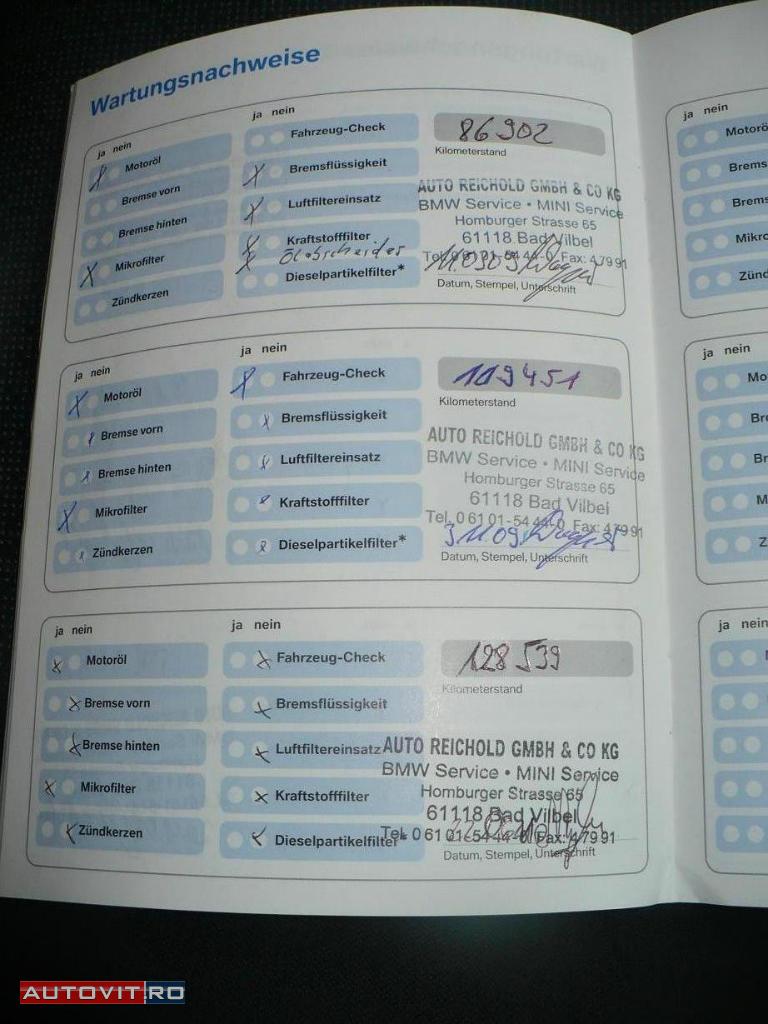 Wartungsnachweise
ja nein
Motoröl
Bremse vorn
Bremse hinten
Mikrofilter
Zündkerzen
ja nein
Fahrzeug-Check
Bremsflüssigkeit
Luftfiltereinsatz
Kraftstofffilter
Ölabscheider
Dieselpartikelfilter*
86902
Kilometerstand
AUTO REICHOLD GMBH & CO KG
BMW Service • MINI Service
Homburger Strasse 65
61118 Bad Vilbel
Tel. 0 61 01-54 44-0, Fax: 4 79 91
Datum, Stempel, Unterschrift
ja nein
Motoröl
Bremse vorn
Bremse hinten
Mikrofilter
Zündkerzen
ja nein
Fahrzeug-Check
Bremsflüssigkeit
Luftfiltereinsatz
Kraftstofffilter
Dieselpartikelfilter*
109451
Kilometerstand
AUTO REICHOLD GMBH & CO KG
BMW Service • MINI Service
Homburger Strasse 65
61118 Bad Vilbel
Tel. 0 61 01-54 44-0, Fax: 4 79 91
Datum, Stempel, Unterschrift
ja nein
Motoröl
Bremse vorn
Bremse hinten
Mikrofilter
Zündkerzen
ja nein
Fahrzeug-Check
Bremsflüssigkeit
Luftfiltereinsatz
Kraftstofffilter
Dieselpartikelfilter
128539
Kilometerstand
AUTO REICHOLD GMBH & CO KG
BMW Service • MINI Service
Homburger Strasse 65
61118 Bad Vilbel
Tel. 0 61 01-54 44-0, Fax: 4 79 91
Datum, Stempel, Unterschrift
ja nein
Motorö
Brems
Brems
Mikro
Zünd
ja nein
Mo
Br
Br
M
Z
ja nein
AUTOVIT.RO